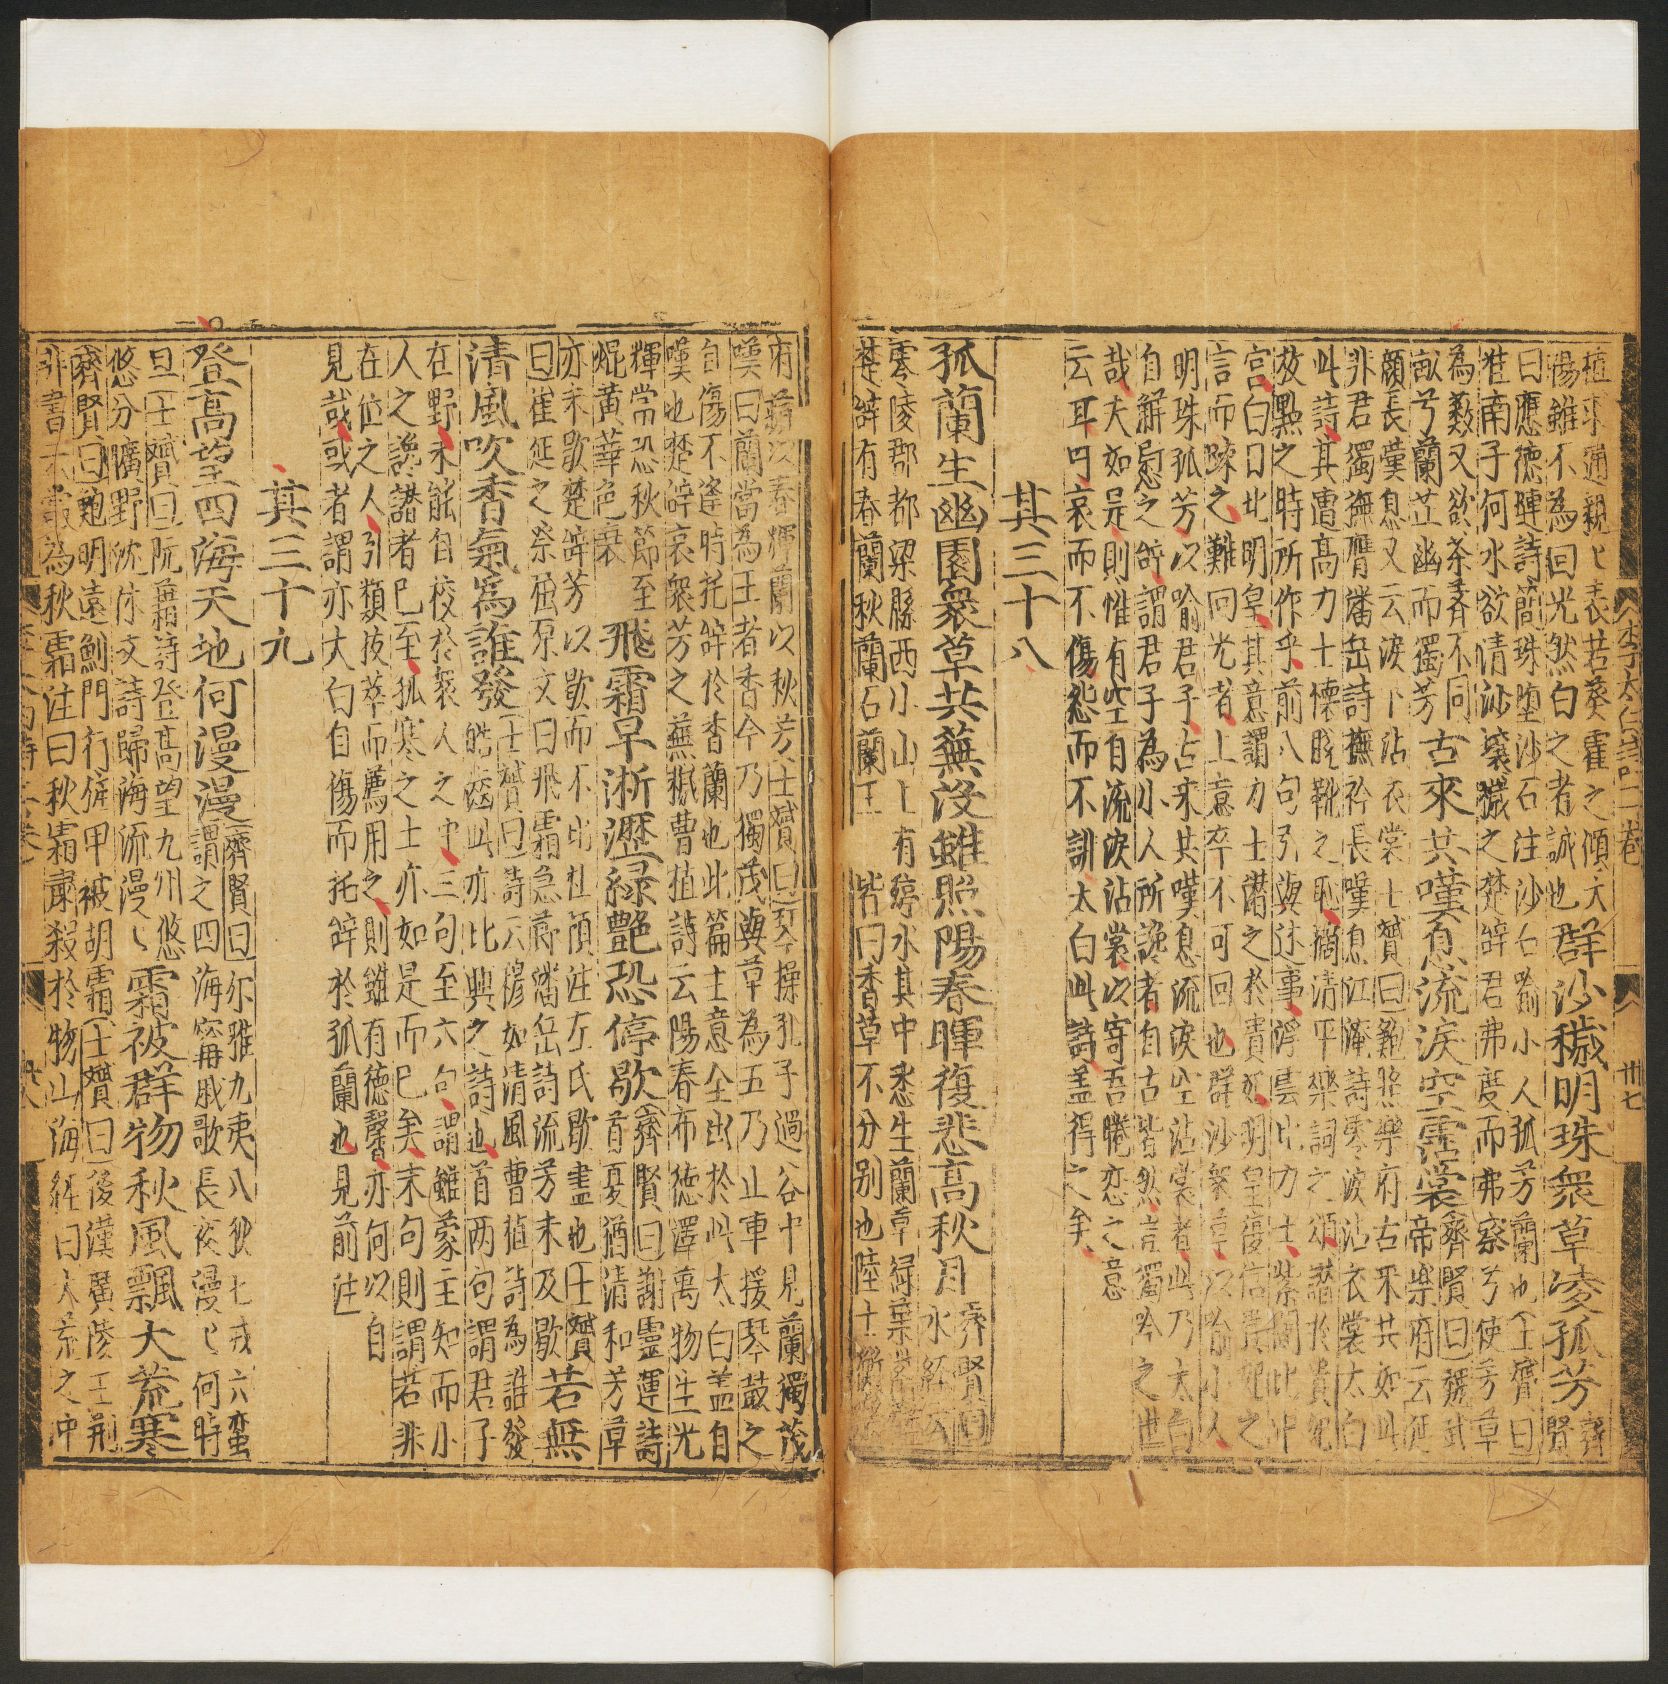 植求通親〻表若葵藿之傾太
陽雖不為回光然向之者誠也
群沙穢明珠衆草凌孤芳
齊
賢
曰應德璉詩簡珠墮沙石注沙石喻小人孤芳蘭也士贇曰
淮南子河水欲清沙壤穢之楚辭君弗度而弗察兮使芳草
為藪又欲荼薺不同
畝兮蘭茝幽而獨芳
古來共嘆息流淚空霑裳
齊賢曰魏武
帝樂府云延
頸長嘆息又云淚下沾衣裳士贇曰雞鳴樂府古來共如此
非君獨撫膺潘岳詩撫衿長嘆息江淹詩零淚沾衣裳太白
此詩其遭高力士懷脫靴之恥摘清平樂詞之頌譖於貴妃
放黜之時所作乎前八句引興述事浮雲比力士紫闥比中
宮白日比明皇其意謂力士譖之於貴妃明皇復信貴妃之
言而踈之難回光者上意卒不可回也群沙衆草以喻小人
明珠孤芳以喻君子古來共嘆息流淚空沾裳者此乃太白
自解慰之辭謂君子為小人所讒者自古皆然豈獨吟之世
哉夫如是則惟有空自流淚沾裳以寄吾睠戀之意
云耳吁哀而不傷怨而不誹太白此詩盖得之矣
其三十八
孤蘭生幽園衆草共蕪沒雖照陽春暉復悲高秋月
齊賢曰
水經云
零陵郡都梁縣西小山上有渟水其中悉生蘭草綠葉紫莖
楚辭有春蘭秋蘭石蘭王 皆曰香草不分別也陸士衡
有籍以春輝蘭以秋芳士贇曰琴操孔子過谷中見蘭獨茂
嘆曰蘭當為王者香今乃獨茂與草為五乃止車援琴鼓之
自傷不逢時托辭於香蘭也此篇主意全出於此太白盖自
嘆也楚辭哀衆芳之蕪穢曹植詩云陽春布德澤萬物生光
輝常恐秋節至
焜黃華色衰
飛霜早淅瀝綠艷恐停歇
齊賢曰謝靈運詩
首夏猶清和芳草
亦未歇楚辭芳以歇而不比杜預注左氏歇盡也士贇
曰崔延之祭屈原文曰飛霜急蔣潘岳詩流芳未及歇
若無
清風吹香氣為誰發
士贇曰詩云穆如清風曹植詩為誰發
皓齒此亦比興之詩也首兩句謂君子
在野未能自校於衆人之中三句至六句謂雖蒙主知而小
人之讒譖者已至孤寒之士亦如是而已矣末句則謂若非
在位之人引類拔萃而薦用之則雖有德馨亦何以自
見哉或者謂亦太白自傷而托辭於孤蘭也見前注
其三十九
登高望四海天地何漫漫
齊賢曰尔雅九夷八狄七戎六蛮
謂之四海甯戚歌長夜漫〻何時
旦士贇曰阮籍詩登高望九州悠
悠分曠野沈休文詩歸海流漫〻
霜被群物秋風飄大荒寒
齊賢曰鮑明遠薊門行旌甲被胡霜士贇曰後漢廣陵王荊
非書 為秋霜注曰秋霜肅殺於物山海經曰大荒之中
李太白詩二卷
卅七